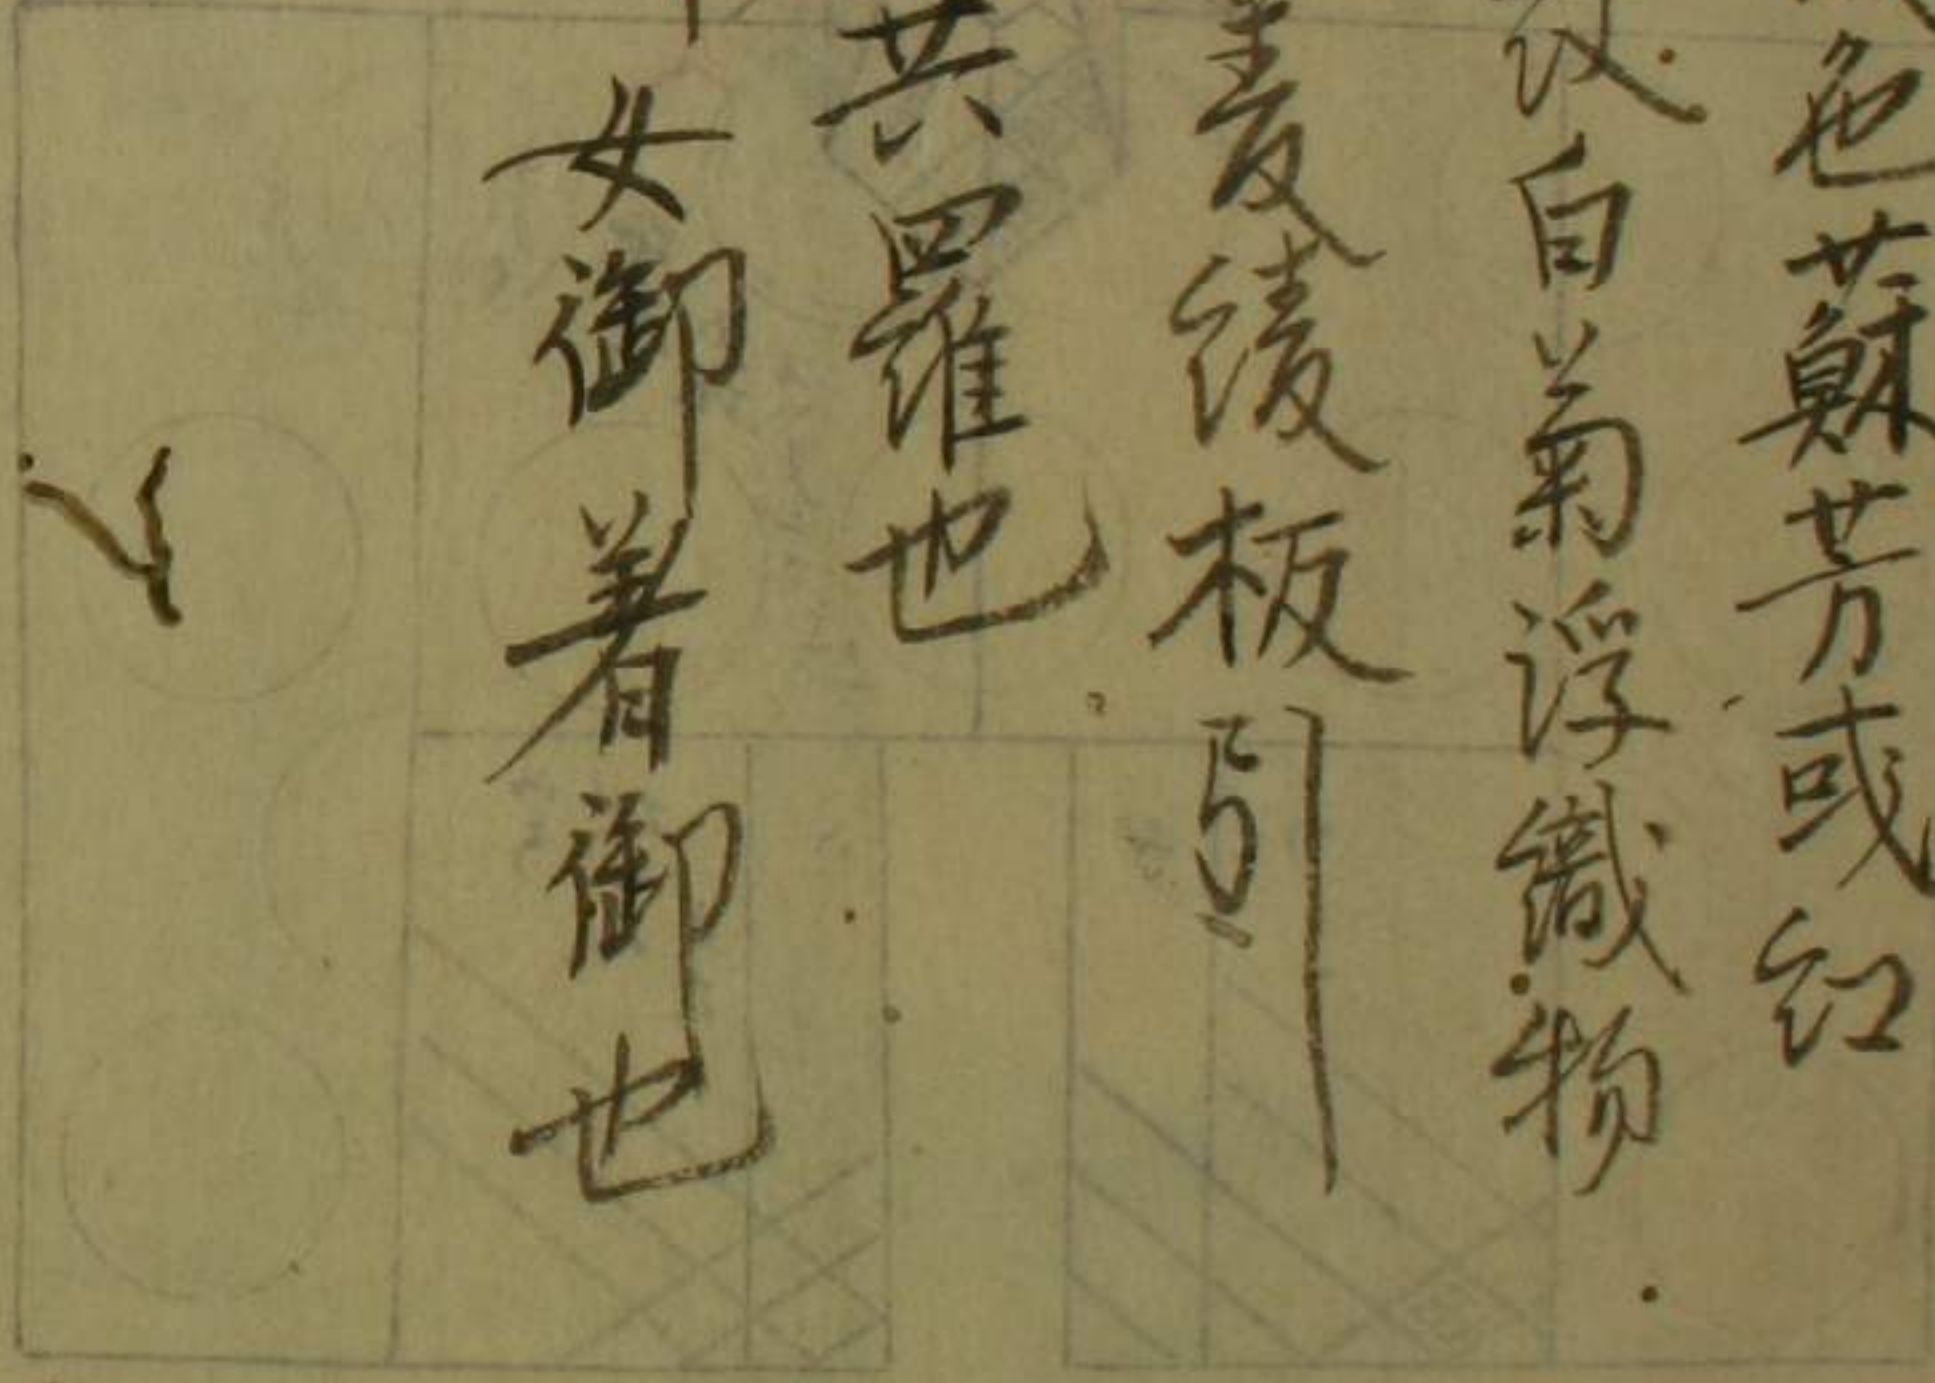 色蘇芳或紅
白菊浮織物
綾板引
共羅也
女御着御也